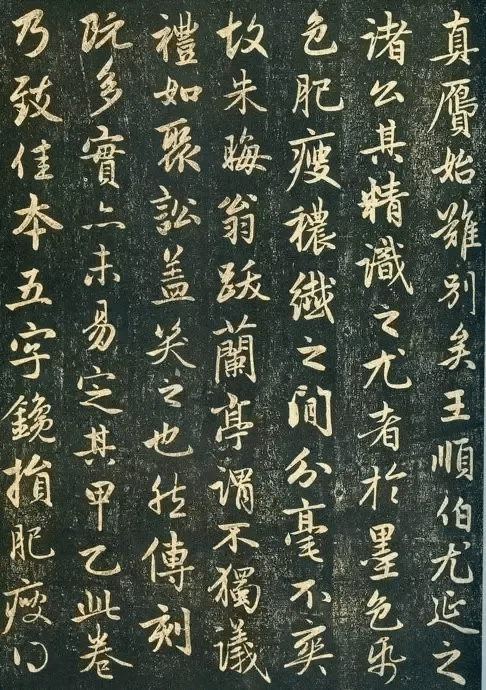 真贋始難別矣王順伯尤延之
諸公其精識之尤者於墨色帋
色肥瘦穠纖之間分毫不爽
故朱晦翁跋蘭亭謂不獨議
禮如聚訟盖笑之也然傳刻
既多實亦未易定其甲乙此卷
乃致佳本五字鑱損肥瘦